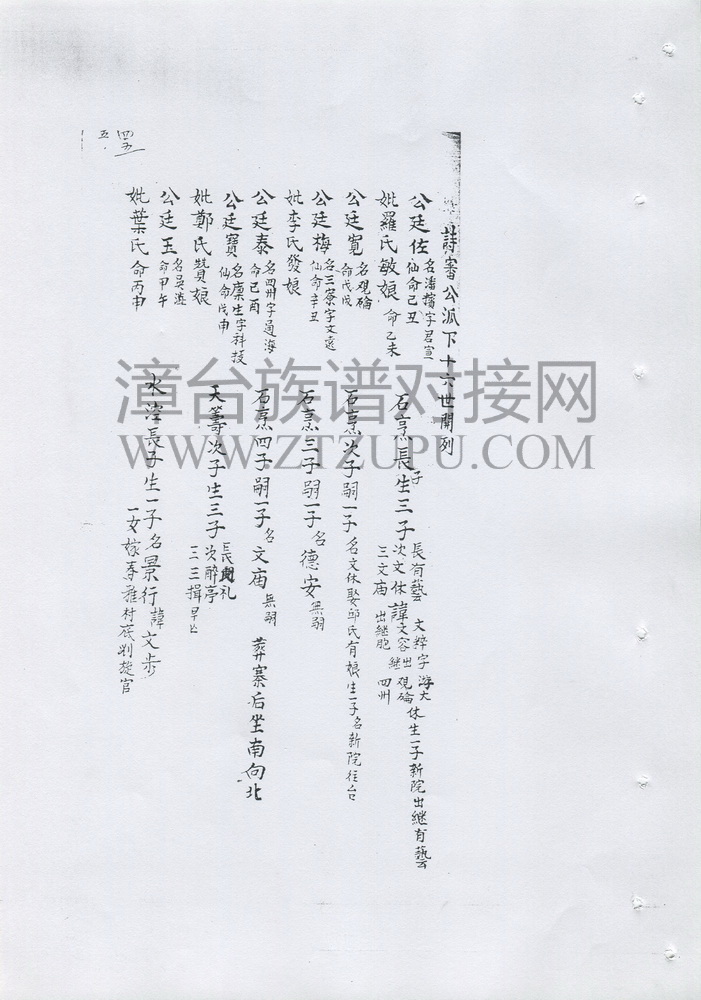 詩審公派下十六世開列
公廷佐 名潘擋字君宣 仙命己丑 石烹長子生三子 長有藝 文粹字游大 次文休 諱文容出継硯碖 休生一子新院出継有藝 三文庙 出継胞四州
妣羅氏敏娘 命乙未
公廷寬 名硯碖 命戊戌 石烹次子嗣一子 名文休娶邱氏有娘生一子名新院往台
公廷梅 名三寮字文遠 仙命辛丑 石烹三子嗣一子 名德安 無嗣
妣李氏發娘
公廷泰 名四卅字通海 命己酉 石烹四子嗣一子 名文庙 無嗣 葬寨后坐南向北
公廷寶 名廩生字科技 仙命戊申 天籌次子生三子 長 礼 次醉亭 三三揖早亡
妣鄭氏贊娘
公廷玉 名吳遊 命甲午 水 長子生一子名景行諱文步 一女嫁 雅村底判旋官
妣葉氏 命丙申
四五
五
漳台族谱对接网
WWW.ZTZUPU.COM